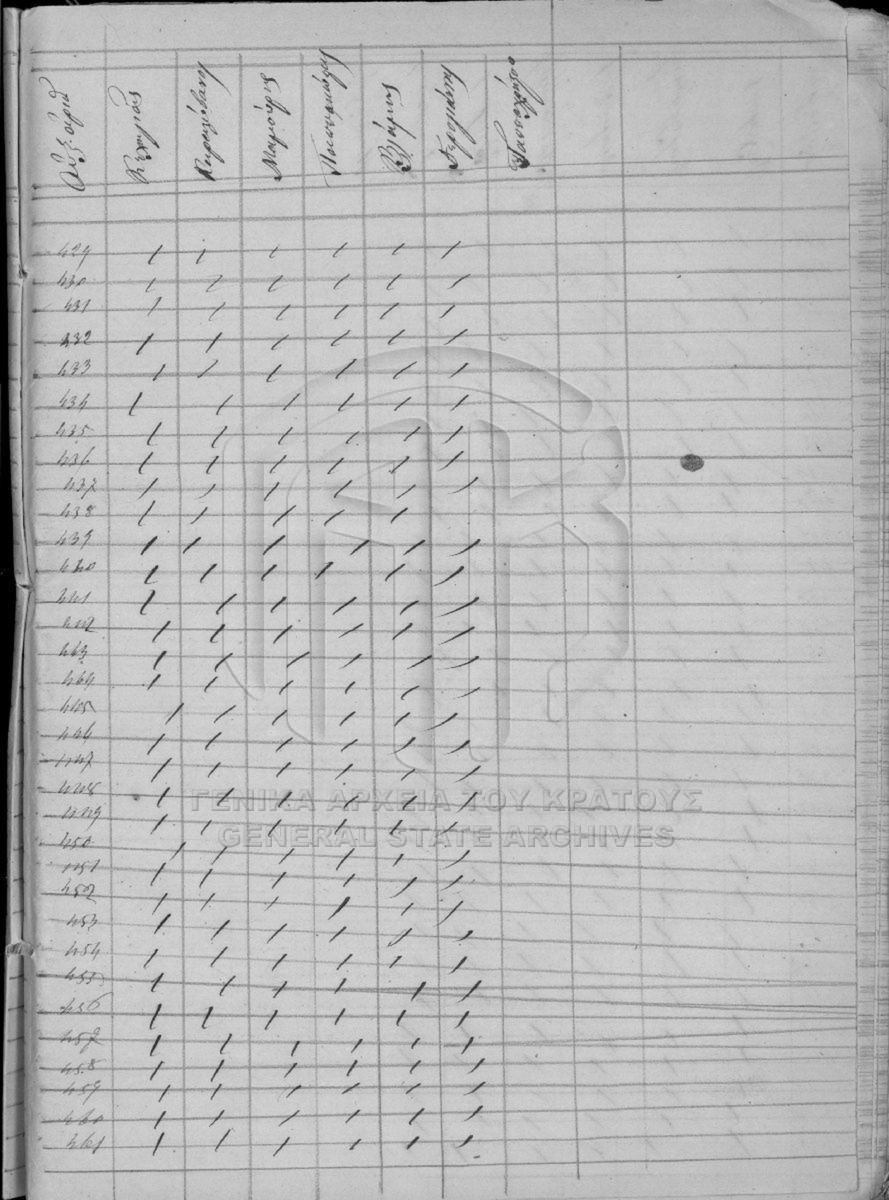 429 / / / / / /
430 / / / / / /
431 / / / / / /
432 / / / / / /
433 / / / / / /
434 / / / / / /
435 / / / / / /
436 / / / / / /
437 / / / / / /
438 / / / / /
439 / / / / / /
440 / / / / / /
441 / / / / / /
442 / / / / / /
443 / / / / / /
444 / / / / / /
445 / / / / / /
446 / / / / / /
447 / / / / / /
448 / / / / / /
ΓΕΝΙΚΑ ΑΡΧΕΙΑ ΤΟΥ ΚΡΑΤΟΥΣ
449 / / / / / /
GENERAL STATE ARCHIVES
450 / / / / / /
451 / / / / / /
452 / / / / / /
453 / / / / / /
454 / / / / / /
455 / / / / / /
456 / / / / / /
457 / / / / / /
458 / / / / / /
459 / / / / / /
460 / / / / / /
461 / / / / / /